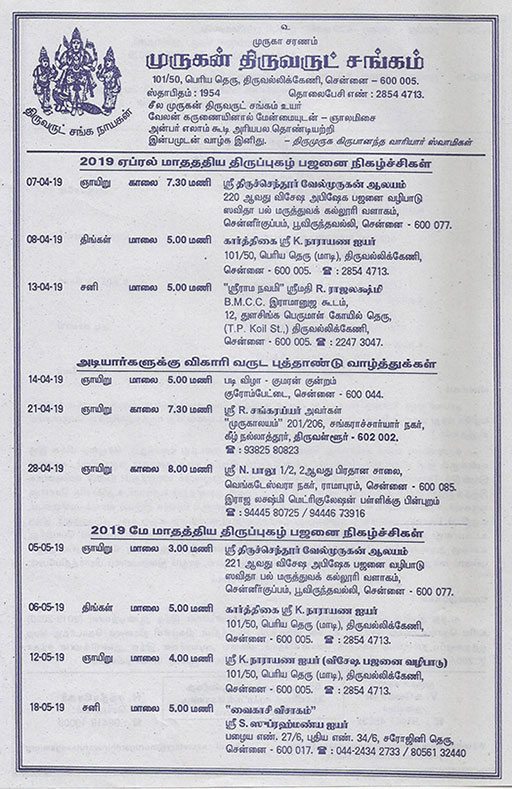 உ
முருகா சரணம்
முருகன் திருவருட் சங்கம்
101/50, பெரிய தெரு, திருவல்லிக்கேணி, சென்னை – 600 005.
ஸ்தாபிதம் : 1954 தொலைபேசி எண் : 2854 4713.
சீல முருகன் திருவருட் சங்கம் உயர்
வேலன் கருணையினால் மேன்மையுடன் – ஞாலமிசை
அன்பர் எலாம் கூடி அரியபல தொண்டியற்றி
இன்பமுடன் வாழ்க இனிது. – திருமுருக கிருபானந்த வாரியார் ஸ்வாமிகள்
திருவருட் சங்க நாயகன்
2019 ஏப்ரல் மாதத்திய திருப்புகழ் பஜனை நிகழ்ச்சிகள்
07-04-19 ஞாயிறு காலை 7.30 மணி ஸ்ரீ திருச்செந்தூர் வேல்முருகன் ஆலயம்
220 ஆவது விசேஷ அபிஷேக பஜனை வழிபாடு
ஸவிதா பல் மருத்துவக் கல்லூரி வளாகம்,
சென்னீர்குப்பம், பூவிருந்தவல்லி, சென்னை - 600 077.
08-04-19 திங்கள் மாலை 5.00 மணி கார்த்திகை ஸ்ரீ K. நாராயண ஐயர்
101/50, பெரிய தெரு (மாடி), திருவல்லிக்கேணி,
சென்னை - 600 005. ☎ : 2854 4713.
13-04-19 சனி மாலை 5.00 மணி "ஸ்ரீராம நவமி" ஸ்ரீமதி R. ராஜலக்ஷ்மி
B.M.C.C. இராமானுஜ கூடம்,
12, துளசிங்க பெருமாள் கோயில் தெரு,
(T.P. Koil St.,) திருவல்லிக்கேணி,
சென்னை - 600 005. ☎ : 2247 3047.
அடியார்களுக்கு விகாரி வருட புத்தாண்டு வாழ்த்துக்கள்
14-04-19 ஞாயிறு மாலை 5.00 மணி படி விழா - குமரன் குன்றம்
குரோம்பேட்டை, சென்னை - 600 044.
21-04-19 ஞாயிறு காலை 7.30 மணி ஸ்ரீ R. சங்கரய்யர் அவர்கள்
"முருகாலயம்" 201/206, சங்கராச்சார்யார் நகர்,
கீழ் நல்லாத்தூர், திருவள்ளூர் - 602 002.
☎ : 93825 80823
28-04-19 ஞாயிறு காலை 8.00 மணி ஸ்ரீ N. பாலு 1/2, 2ஆவது பிரதான சாலை,
வெங்கடேஸ்வரா நகர், ராமாபுரம், சென்னை - 600 085.
இராஜ லக்ஷ்மி மெட்ரிகுலேஷன் பள்ளிக்கு பின்புறம்
☎ : 94445 80725 / 94446 73916
2019 மே மாதத்திய திருப்புகழ் பஜனை நிகழ்ச்சிகள்
05-05-19 ஞாயிறு மாலை 3.00 மணி ஸ்ரீ திருச்செந்தூர் வேல்முருகன் ஆலயம்
221 ஆவது விசேஷ அபிஷேக பஜனை வழிபாடு
ஸவிதா பல் மருத்துவக் கல்லூரி வளாகம்,
சென்னீர்குப்பம், பூவிருந்தவல்லி, சென்னை - 600 077.
06-05-19 திங்கள் மாலை 5.00 மணி கார்த்திகை ஸ்ரீ K. நாராயண ஐயர்
101/50, பெரிய தெரு (மாடி), திருவல்லிக்கேணி,
சென்னை - 600 005. ☎ : 2854 4713.
12-05-19 ஞாயிறு மாலை 4.00 மணி ஸ்ரீ K. நாராயண ஐயர் (விசேஷ பஜனை வழிபாடு)
101/50, பெரிய தெரு (மாடி), திருவல்லிக்கேணி,
சென்னை - 600 005. ☎ : 2854 4713.
18-05-19 சனி மாலை 5.00 மணி "வைகாசி விசாகம்"
ஸ்ரீ S. ஸுப்ரஹ்மண்ய ஐயர்
பழைய எண். 27/6, புதிய எண். 34/6, சரோஜினி தெரு,
சென்னை - 600 017. ☎ : 044-2434 2733 / 80561 32440